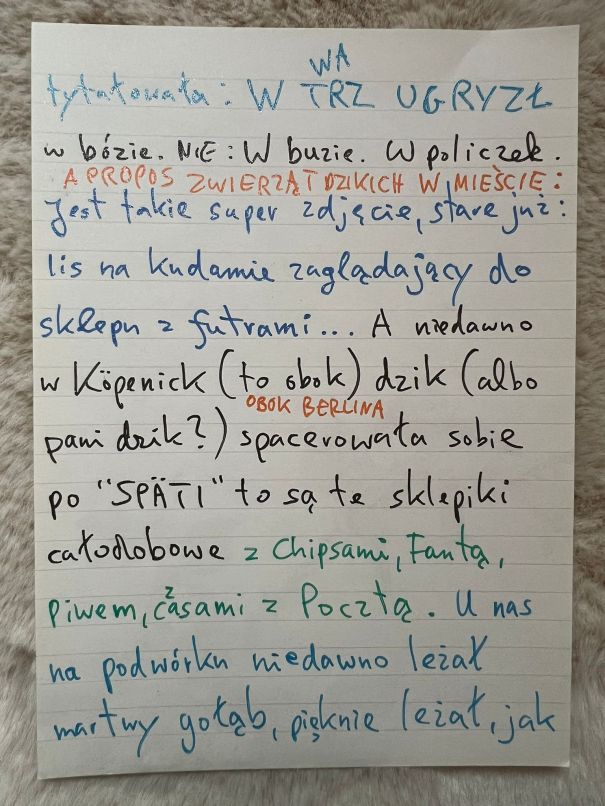 WA
tytatowała: W TRZ UGRYZŁ
w bózie. NIE: W buzie. W policzek.
A PROPOS ZWIERZĄT DZIKICH W MIEŚCIE:
Jest takie super zdjęcie, stare już:
lis na kudamie zaglądający do
sklepu z futrami... A niedawno
w Köpenick (to obok) dzik (albo
OBOK BERLINA
pani dzik?) spacerowała sobie
po "SPÄTI" to są te sklepiki
całodobowe z Chipsami, Fantą,
z
Piwem, casami z Pocztą. U nas
na podwórku niedawno leżał
martwy gołąb, pięknie leżał, jak